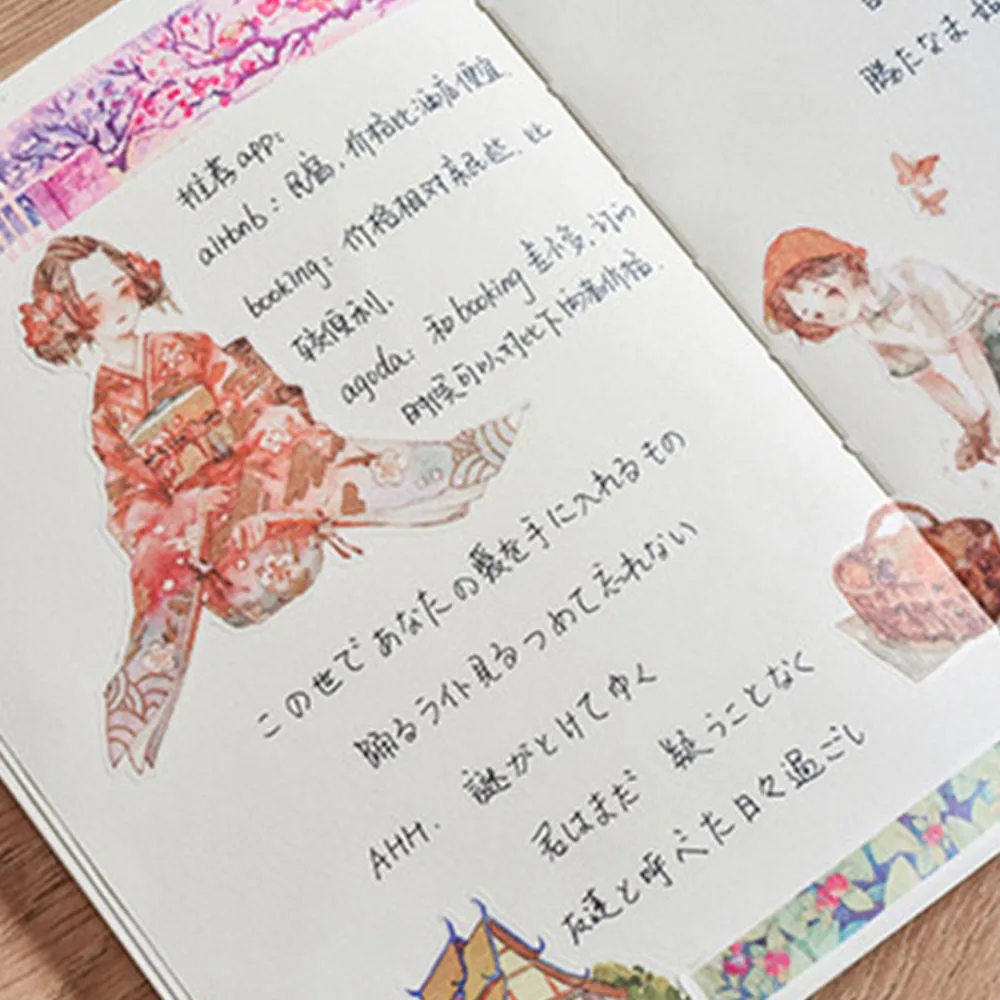 推荐app:
airbnb: 民宿,价格比酒店便宜
booking: 价格相对亲民些,比
较便利.
agoda: 和booking差不多,订的
时候可以对比下两者价格.
この世であなたの愛を手に入れるもの
踊るライト見るつめて忘れない
AHH. 謎がとけてゆく
君はまだ 疑うことなく
友達と呼べた日々過ごし
陽たなま